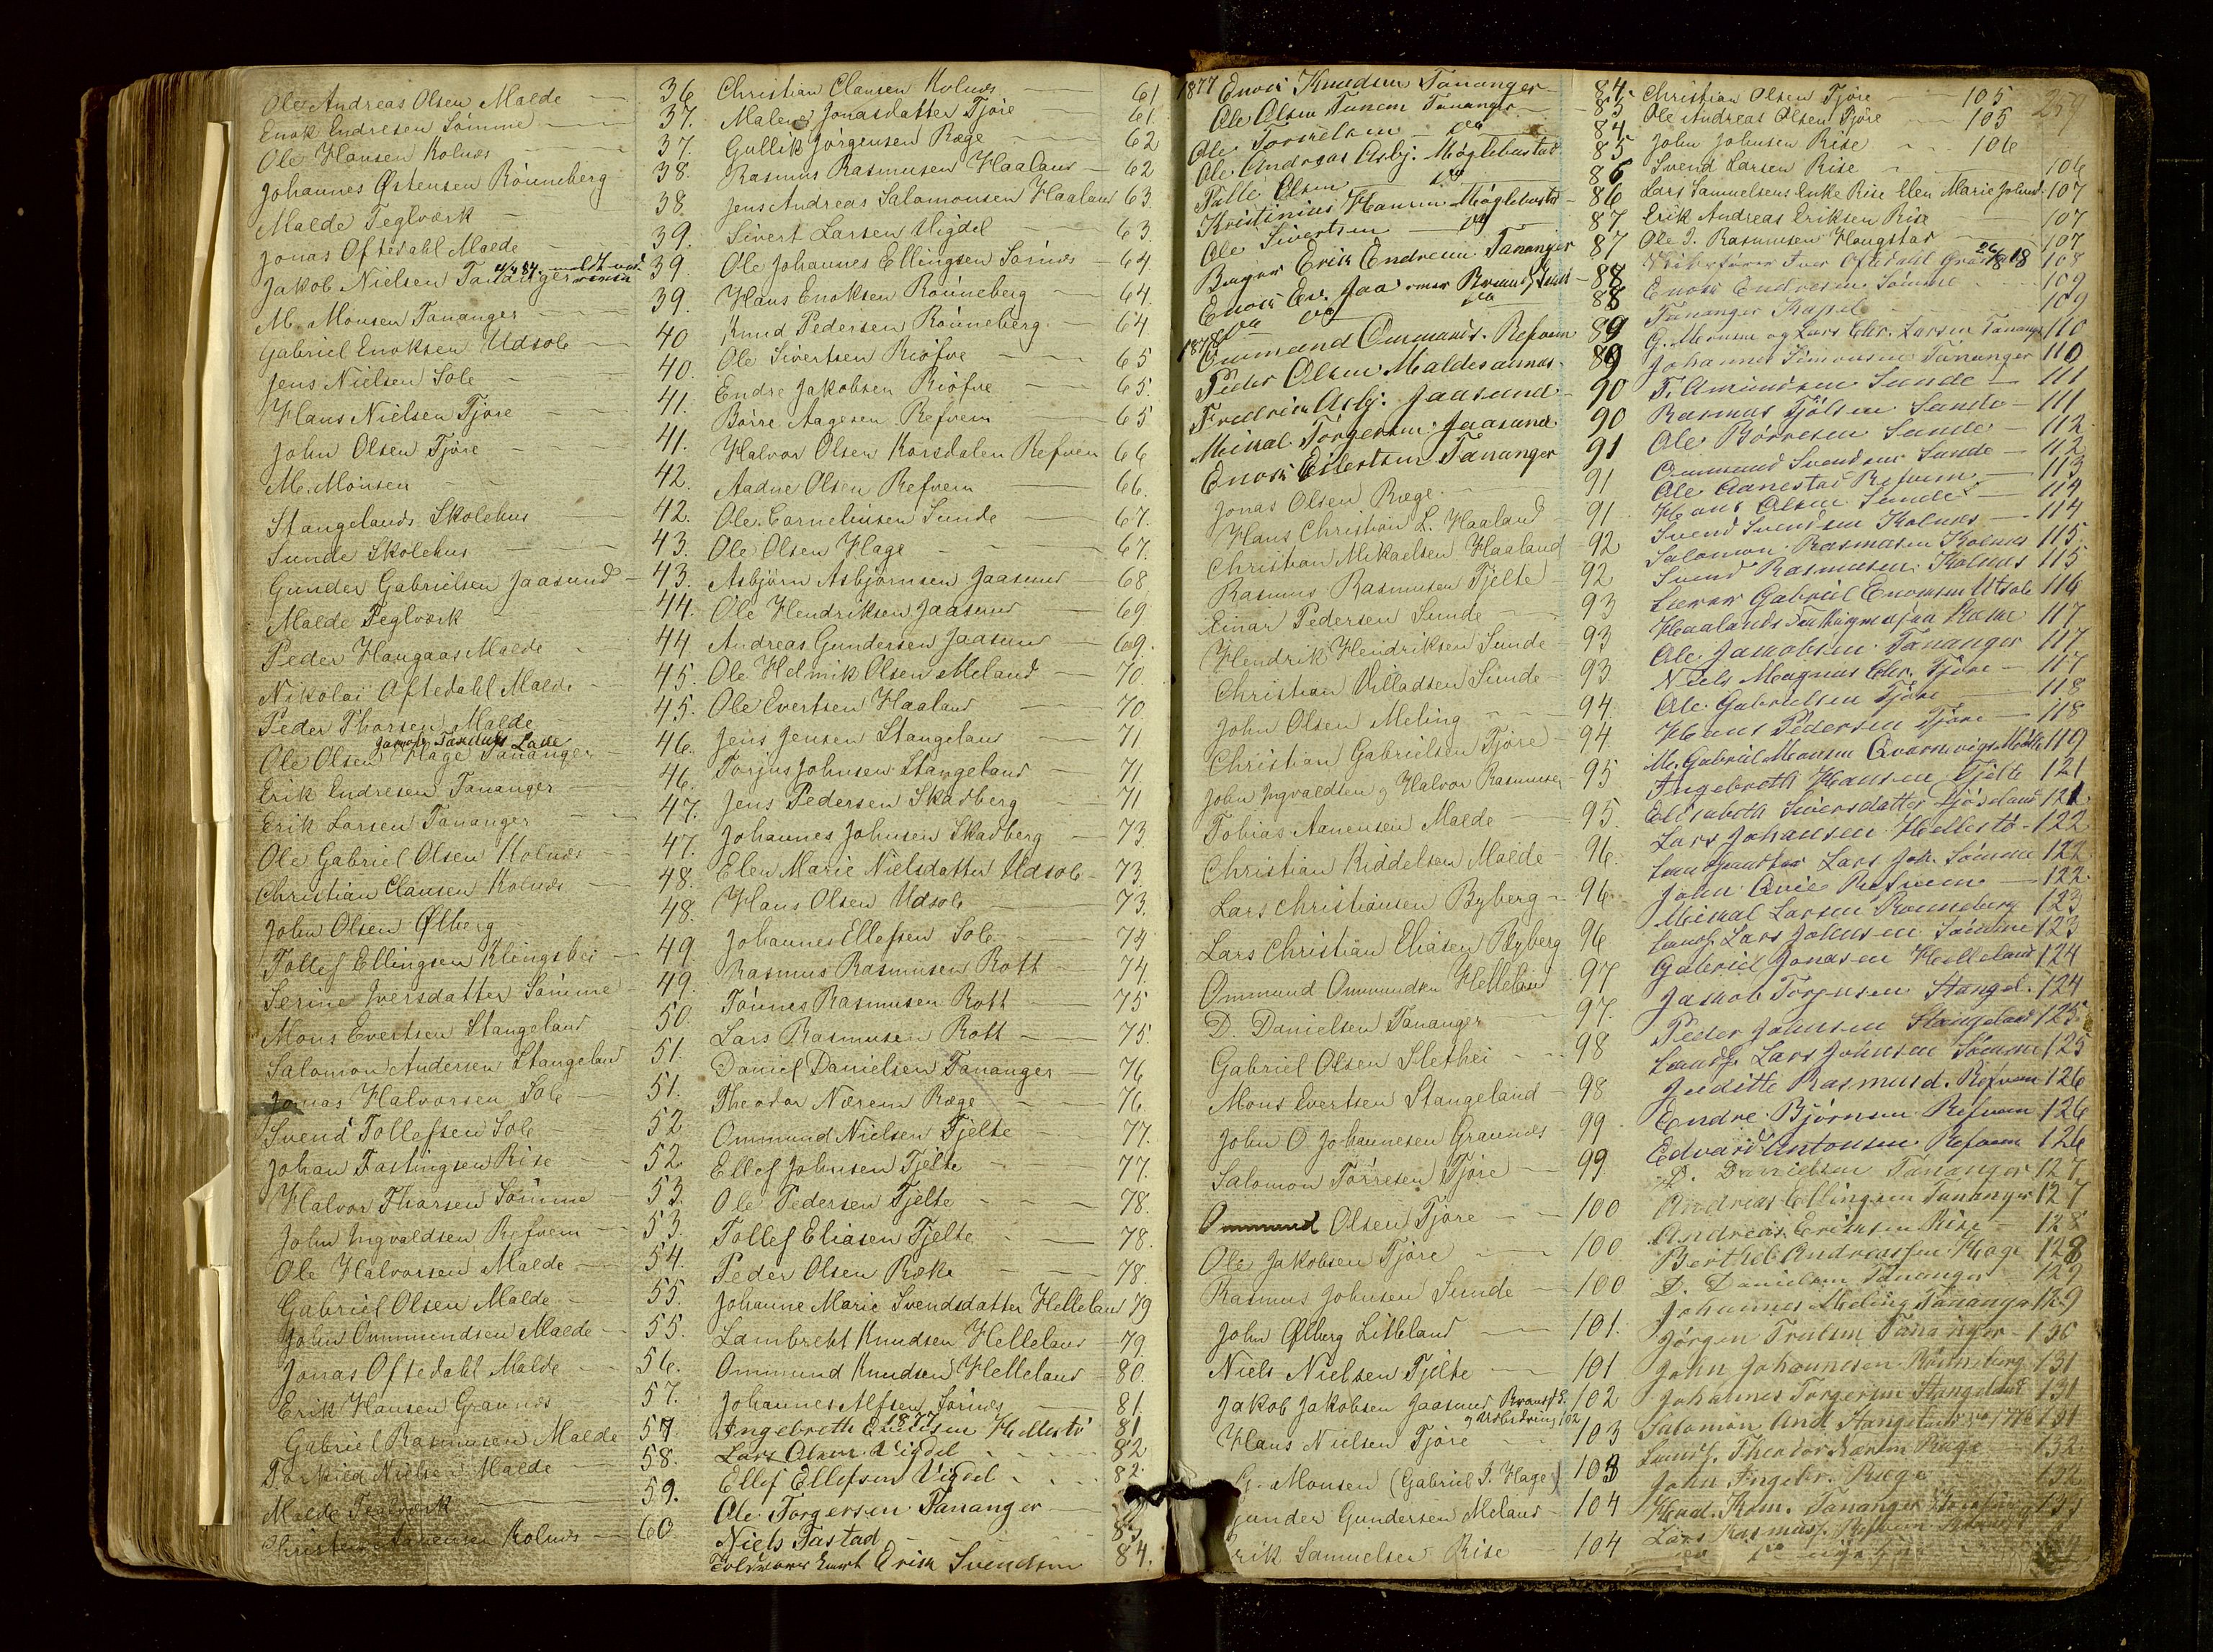 Ole Andreas Olsen Malde 36
Enok Endresen Sömme 37.
Ole Hansen Kolnæs 37.
Johannes Østensen Rönneberg 38.
Malde Teglværk 38.
Jonas Oftedahl Malde 39.
Jakob Nielsen Tananger 39.
M. Monsen Tananger 39.
Gabriel Enoksen Udsole 40
Jens Nielsen Sole 40.
Hans Nielsen Tjöre 41.
John Olsen Tjöre 41.
M. Monsen 42.
Stangelands Skolehus 42.
Sunde Skolehus 43.
Gunder Gabrielsen Jaasund 43.
Malde Teglværk 44.
Peder Haugaas Malde 44.
Nikolai Oftedahl Malde 45.
Peder Thorsen Malde 45.
Ole Olsen Hage Tananger 46.
Erik Endresen Tananger 46.
Erik Larsen Tananger 47.
Ole Gabriel Olsen Kolnæs 47.
Christian Clausen Kolnæs 48.
John Olsen Ølberg 48.
Tollef Ellingsen Klingshei 49.
Serine Iversdatter Sömme 49.
Mons Evertsen Stangeland 50
Salomon Andersen Stangeland 51.
Jonas Halvorsen Sole 51.
Svend Tollefsen Sole 52
Johan Fastingsen Rise 52.
Halvor Thorsen Sömme 53.
John Ingvaldsen Refvem 53.
Ole Halvorsen Malde 54.
Gabriel Olsen Malde 55.
John Ommundsen Malde 55.
Jonas Oftedahl Malde 56.
Erik Hansen Grannæs 57.
Gabriel Rasmussen Malde 57.
Torkild Nielsen Malde 58.
Malde Teglværk 59.
Kolnæs 60
Christian Clausen Kolnæs 61
Malene Jonasdatter Tjöre 61.
Gullik Jörgensen Ræge 62
Rasmus Rasmussen Haaland 62
Jens Andreas Salomonsen Haaland 63.
Sivert Larsen Vigdel 63.
Ole Johannes Ellingsen Sörnæs 64.
Hans Enoksen Rönneberg 64.
Knud Pedersen Rönneberg 64
Ole Sivertsen Riöfve 65
Endre Jakobsen Riöfve 65.
Börre Aagesen Refvem 65
Halvor Olsen Korsdalen Refvem 66
Aadne Olsen Refvem 66.
Ole Corneliusen Sunde 67.
Ole Olsen Hage 67.
Asbjörn Asbjörnsen Jaasund 68
Ole Hendriksen Jaasund 69
Andreas Gundersen Jaasund 69.
Ole Helmik Olsen Meland 70.
Ole Evertsen Haaland 70
Jens Jensen Stangeland 71
Torjus Johnsen Stangeland 71.
Jens Pedersen Skadberg 71
Johannes Johnsen Skadberg 73.
Elen Marie Nielsdatter Udsole 73.
Hans Olsen Udsole 73.
Johannes Ellefsen Sole 74
Rasmus Rasmusen Rott 74.
Tönnes Rasmusen Rott 75
Lars Rasmusen Rott 75.
Daniel Danielsen Tananger 76
Theodor Nærem Ræge 76
Ommund Nielsen Tjelte 77.
Ellef Johnsen Tjelte 77.
Ole Pedersen Tjelte 78.
Tollef Eliasen Tjelte 78.
Peder Olsen Ræke 78.
Johanne Marie Svendsdatter Helleland 79
Lambrekt Knudsen Helleland 79.
Ommund Knudsen Helleland 80.
Johannes Alfsen Sörnæs 81.
1877
Ingebreth Hellestö 81
Lars Olsen Vigdel 82
Ellef Ellefsen Vigdel 82.
Ole Torgersen Tananger
Niels Tastad 83.
Erik Svendsen 84.
1877 Enok Knudsen Tananger 84.
Ole Olsen Tananger 85
Ole 84
Ole Andreas Asbj. Möglebustad 85
Palle Olsen do 86
Kristinius Hansen Möglebustad 86
Ole Sivertsen do 87
Erik Endresen Tananger 87
88
do do 88
1878 Ommund Ommunds. Refvem 89
Peder Olsen Maldesannes 89
Fredrik Asbj. Jaasund 90
Mikal Torgersen Jaasund 90
Enok Eilertsen Tananger 91
Jonas Olsen Ræge 91
Hans Christian L. Haaland 91
Christian Mikaelsen Haaland 92
Rasmus Rasmusen Tjelte 92
Einar Pedersen Sunde 93
Hendrik Hendriksen Sunde 93
Christian Villadsen Sunde 93.
John Olsen Meling 94.
Christian Gabrielsen Tjöre 94
John Ingvaldsen og Halvor Rasmusen 95
Tobias Aanensen Malde 95.
Christian Kiddelsen Malde 96.
Lars Christiansen Byberg 96.
Lars Christian Eliasen Byberg 96
Ommund Ommundsen Helleland 97
D Danielsen Tananger 97.
Gabriel Olsen Slethei 98
Mons Evertsen Stangeland 98
John O Johannesen Grannæs 99
Salomon Törresen Tjöre 99
Ommund Olsen Tjöre 100
Ole Jakobsen Tjöre 100
Rasmus Johnsen Sunde 100
John Ølberg Litleland 101.
Niels Nielsen Tjelte 101
Jakob Jakobsen Jaasund 102
Hans Nielsen Tjöre 103
G. Monsen (Gabriel J. Hage) 103
Gunder Gundersen Meland 104
Erik Samuelsen Rise 104
259
Christian Olsen Tjöre 105
Ole Andreas Olsen Tjöre 105
John Johnsen Rise 106
Svend Larsen Rise 106
Lars Samuelsens Enke Rise Elen Marie Johnsd. 107
Erik Andreas Eriksen Rise 107
Ole J. Rasmusen Haugstad 107
108
Enok Endresen Sömme 109
Tananger Kapel 109
G. Monsen og Lars Chr. Larsen Tananger 110
Johannes Simonsen Tananger 110
T. Amundsen Sunde 111
Rasmus Sunde 111
Ole Börresen Sunde 112
Ommund Svendsen Sunde 112
Ole Aanestad Refvem 113
Hans Olsen Sunde 114
Svend Svendsen Kolnæs 114
Salomon Rasmusen Kolnæs 115
Svend Rasmusen Kolnæs 115
Gabriel Enoksen Utsole 116
Haalands 117
Ole Jakobsen Tananger 117
Niels Magnus Chr. Tjöre 117
Ole Gabrielsen Tjöre 118
Hans Pedersen Tjöre 118
M. Gabriel Monsen Malde 119
Ingebreth Hansen Tjelte 121
Elisabeth Siversdatter 121
Lars Johansen Hellestö 122
Lars Joh. Sömme 122
John Refvem 122
Mikal Larsen Rönneberg 123
Lars Johnsen Sömme 123
Gabriel Jonasen Helleland 124
Jakob Torjusen Stangel. 124
Peder Johnsen Stangeland 125
Lars Johnsen Sömme 125
Juditte Rasmusd. Refvem 126
Endre Björnsen Refvem 126
Edvard Antonsen Refvem 126
D. Danielsen Tananger 127
Andreas Ellingsen Tananger 127
Andreas Eriksen Rise 128
Berthel Andreassen Hage 128
D. Danielsen Tananger 129
Johannes Meling Tananger 129
Jörgen Truelsen Tananger 130
John Johannesen Rönneberg 131
Johannes Torgersen Stangeland 131
Salomon And. Stangeland 131
Theodor Nærem Ræge 132
John Ingebr. Ræge 132
Tananger 133
Lars Rasmus. Refvem